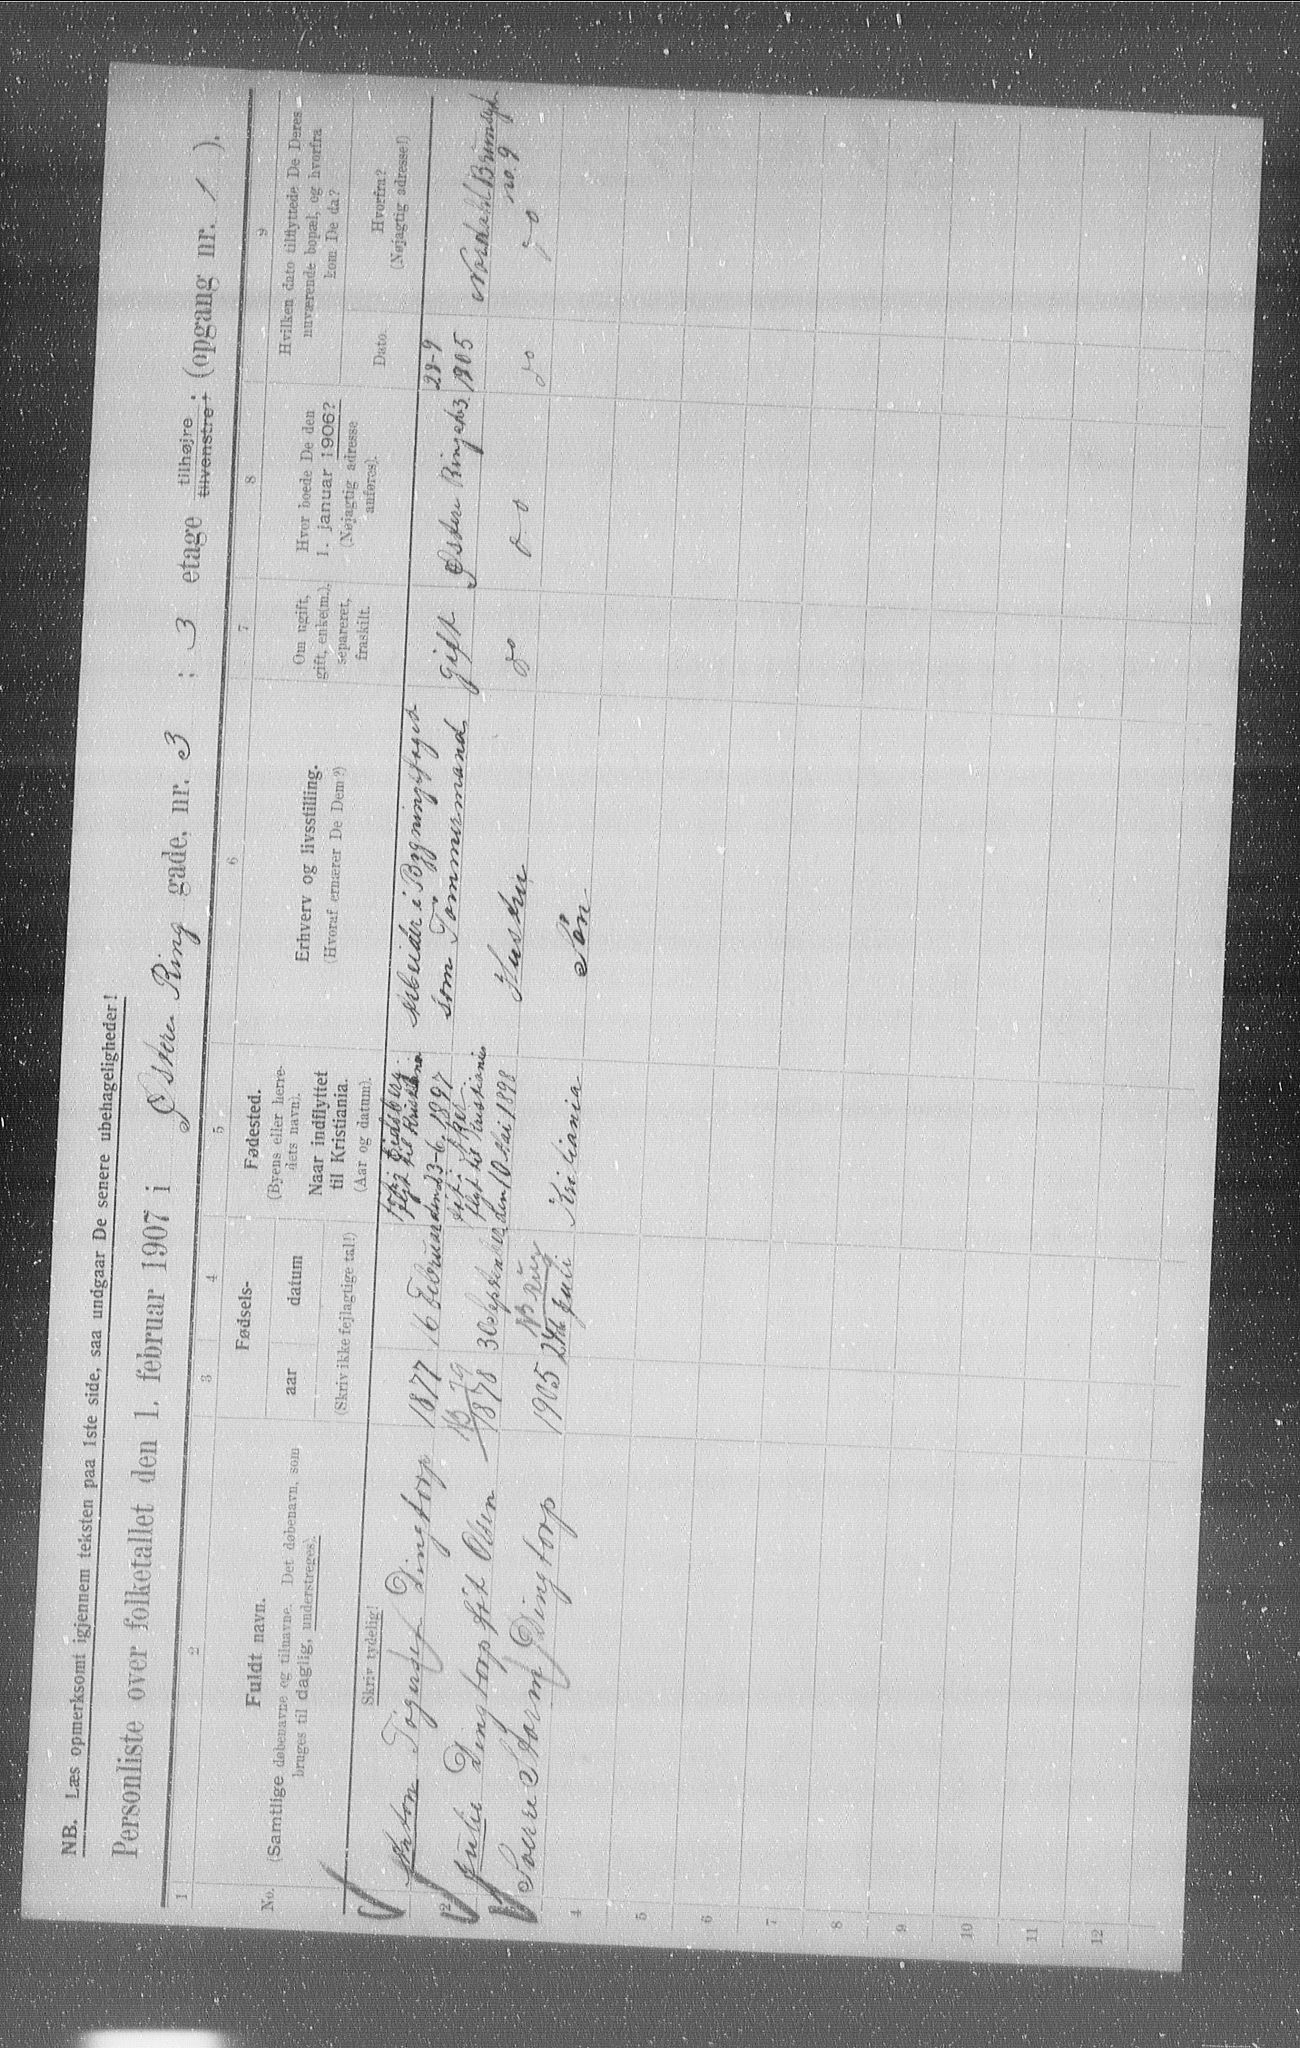 NB. Læs opmerksomt igjennem teksten paa 1ste side, saa undgaar De senere ubehageligheder!
Personliste over folketallet den 1. februar 1907 i Østre Ring gade, nr. 3 ; 3 etage tilhøjre ; (opgang nr. 1 ).
tilvenstre;
1 2 3 4 5 6 7 8 9
No.
Fuldt navn.
(Samtlige døbenavne og tilnavne. Det døbenavn, som
bruges til daglig, understreges).
Skriv tydelig!
Fødsels-
aar datum
(Skriv ikke fejlagtige tal!)
Fødested.
(Byens eller herre-
dets navn).
Naar indflyttet
til Kristiania.
(Aar og datum).
Erhverv og livsstilling.
(Hvoraf ernærer De Dem?)
Om ugift,
gift, enke(m.),
separeret,
fraskilt.
Hvor boede De den
1. januar 1906?
(Nøjagtig adresse
anføres).
Hvilken dato tilflyttede De Deres
nuværende bopæl, og hvorfra
kom De da?
Dato.
Hvorfra?
(Nøjagtig adresse!)
Anton Dingtorp 1877 16 Februar
Eidsberg
flyt til Kristiania
den 23-6-1897
Arbeider i Bygningsfaget
som Tömmermand
gift
Østre Ringgd 3
28-9
1905
Nordahl Brunsgt
no. 9
2 Julie Dingtorp föt Olsen 1878 30 September
flyt til Kristiania
den 10 Mai 1898
Hustru
do
do
do
do
Sverre Storm Dingtorp 1905 24de Juli
Kristiania
Sön
4
5
6
7
8
9
10
11
12